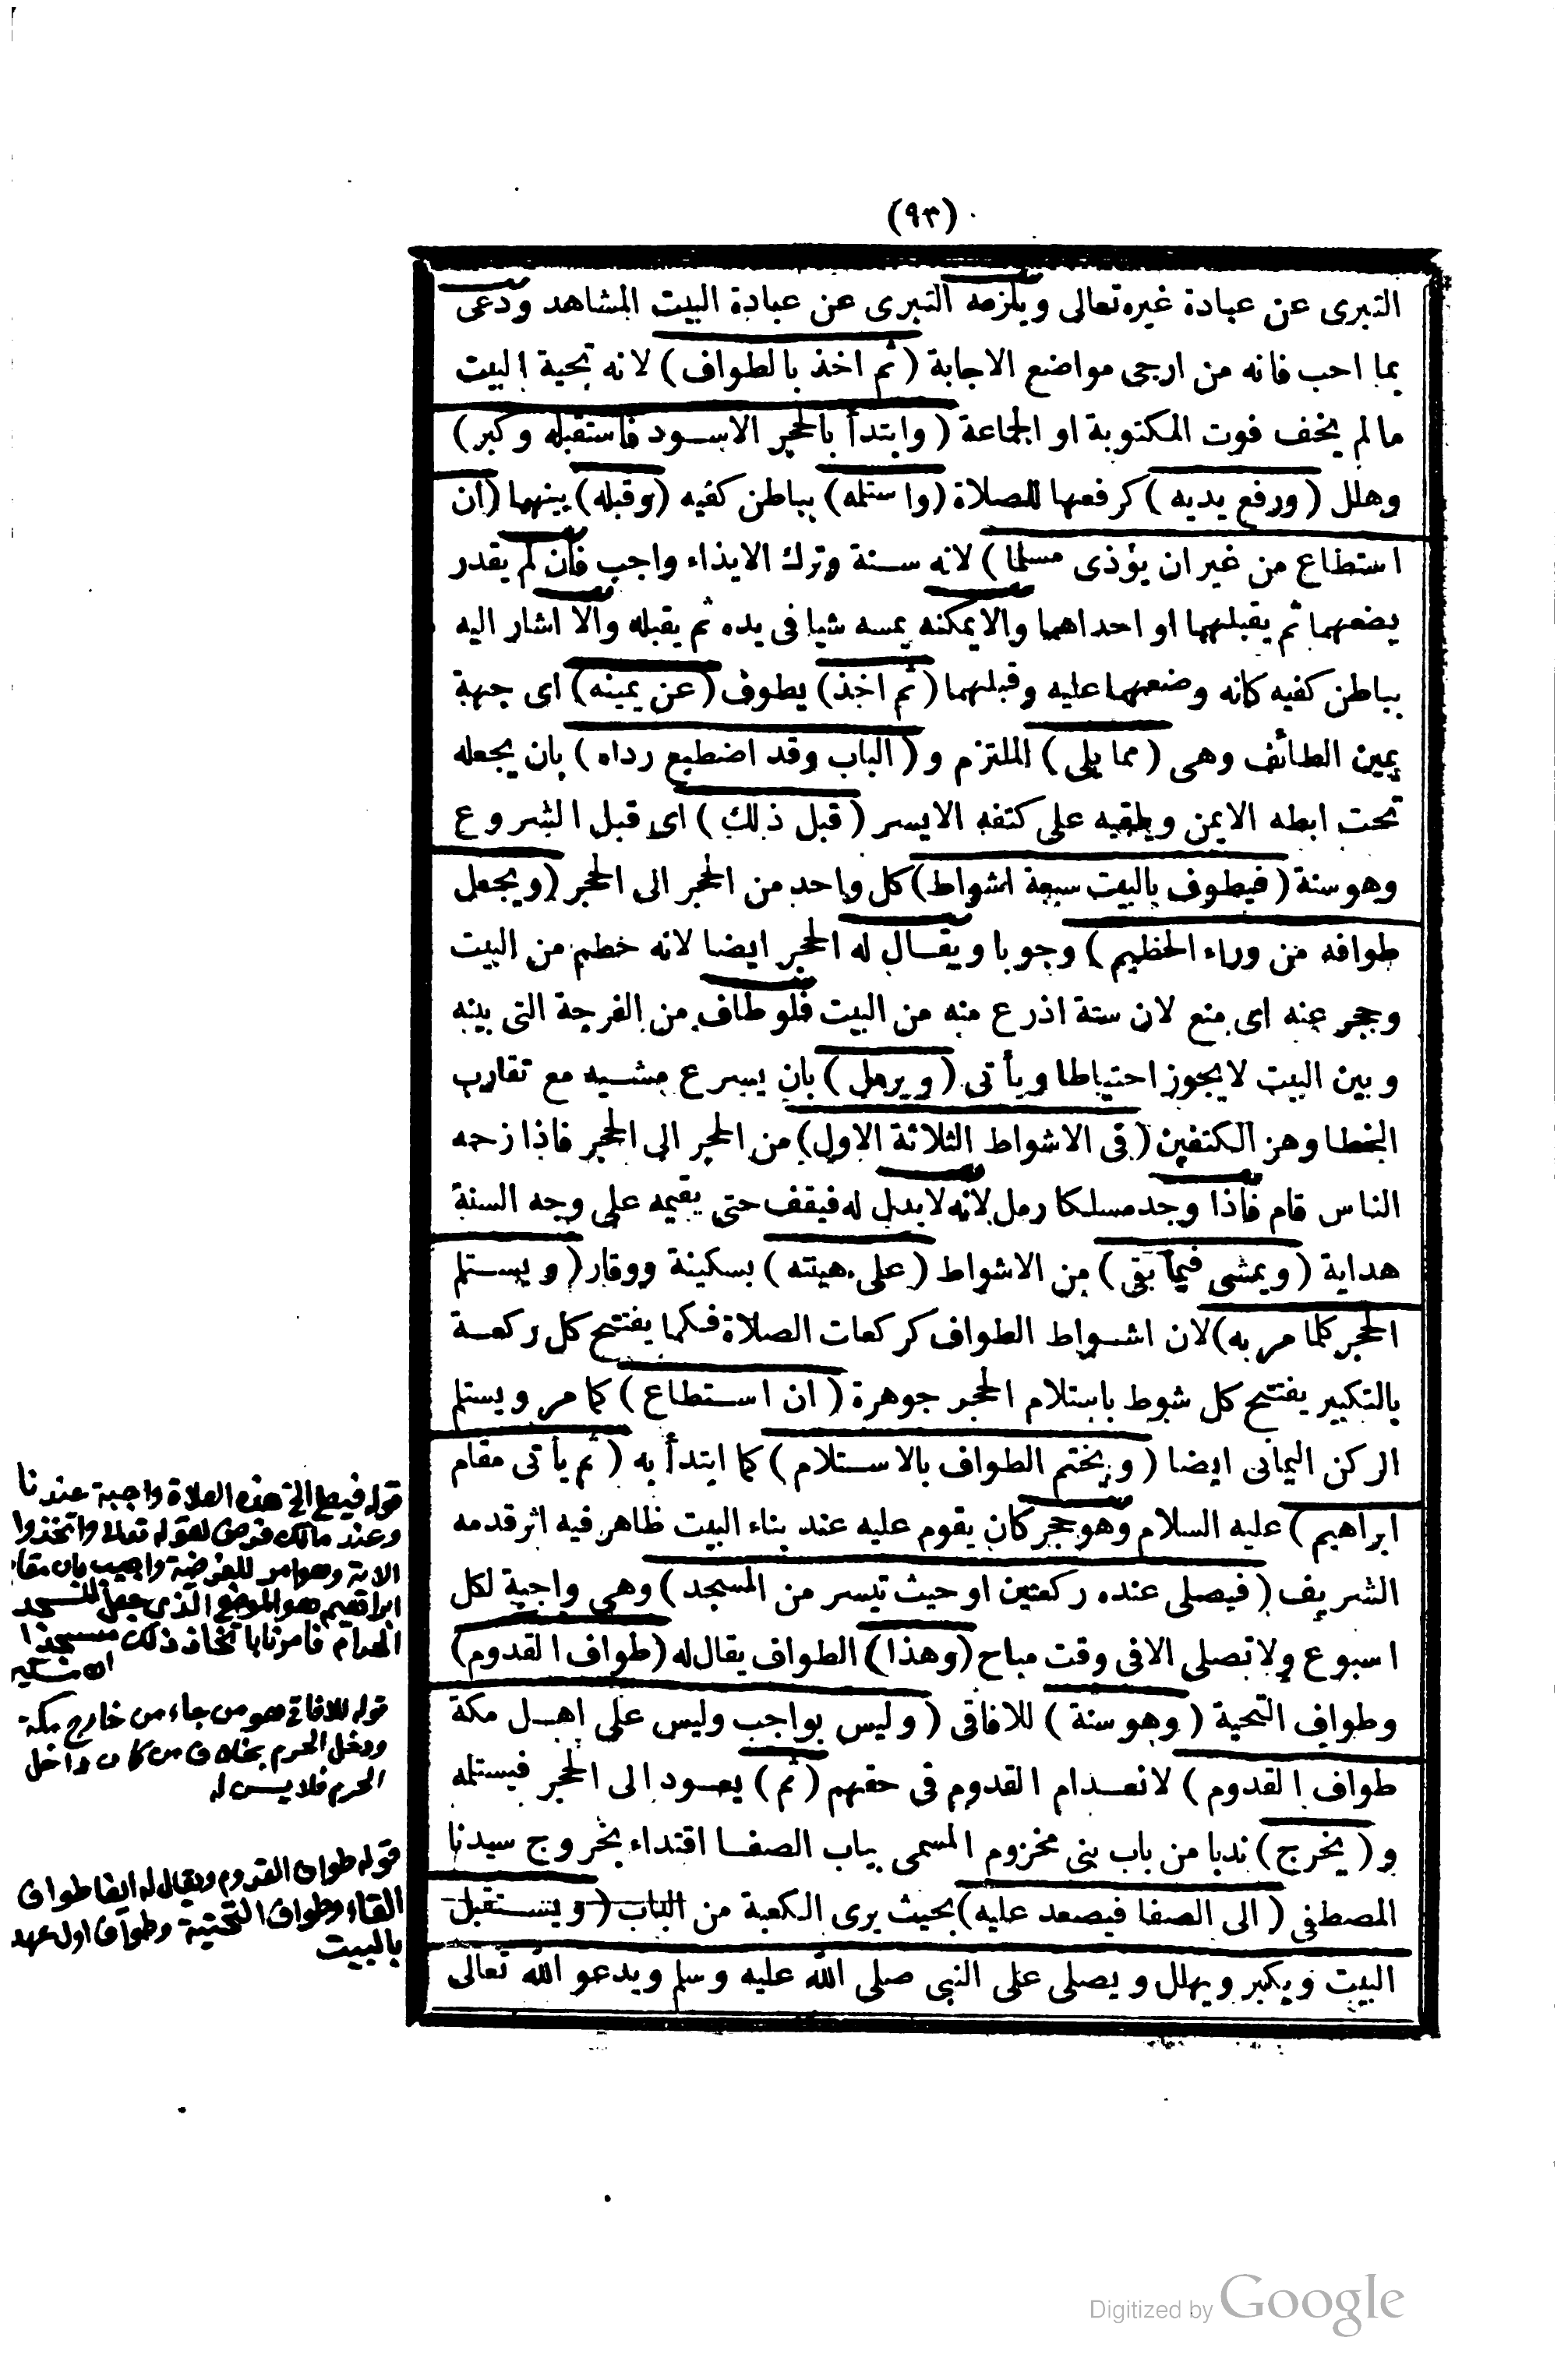 (٩٣)
التبرى عن عبادة غيره تعالى ويلزمه التبرى عن عبادة البيت المشاهد ودعى
بما احب فانه من ارجى مواضع الاجابة (ثم اخذ بالطواف) لانه تحية البيت
مالم يخف فوت المكتوبة او الجماعة (وابتدأ بالحجر الاسود فاستقبله وكبر)
وهلل (ورفع يديه) كرفعها للصلاة (واستلمه) بباطن كفيه (وقبله) بينهما (ان
استطاع من غير ان يؤذى مسلما) لانه سنة وترك الايذاء واجب فان لم يقدر
يضعهما ثم يقبلهما او احداهما والايمكنه يمسه شيا فى يده ثم يقبله والا اشار اليه
بباطن كفيه كانه وضعهما عليه وقبلهما (ثم اخذ) يطوف (عن يمينه) اى جهة
يمين الطائف وهى (مما يلى) الملتزم و (الباب وقد اضطبع رداه) بان يجعله
تحت ابطه الايمن ويلقيه على كتفه الايسر (قبل ذلك) اى قبل الشروع
وهو سنة (فيطوف بالبيت سبعة اشواط) كل واحد من الحجر الى الحجر (ويجعل
طوافه من وراء الحظيم) وجوبا ويقال له الحجر ايضا لانه خطم من البيت
وحجر عنه اى منع لان ستة اذرع منه من البيت فلو طاف من الفرجة التى بينه
وبين البيت لايجوز احتياطا ويأتى (ويرمل) بان يسرع مشيه مع تقارب
الخطا وهز الكتفين (فى الاشواط الثلاثة الاول) من الحجر الى الحجر فاذا زحمه
الناس قام فاذا وجد مسلكا رمل لانه لابدل له فيقف حتى يقيمه على وجه السنة
هداية (ويمشى فيما بقى) من الاشواط (على هينته) بسكينة ووقار (ويستلم
الحجر كلما مر به) لان اشواط الطواف كركعات الصلاة فكما يفتتح كل ركعة
بالتكبير يفتتح كل شوط باستلام الحجر جوهرة (ان استطاع) كما مر ويستلم
الركن اليمانى ايضا (ويختم الطواف بالاستلام) كما ابتدأ به (ثم يأتى مقام
ابراهيم) عليه السلام وهو حجر كان يقوم عليه عند بناء البيت ظاهر فيه اثر قدمه
الشريف (فيصلى عنده ركعتين او حيث تيسر من المسجد) وهى واجبة لكل
اسبوع ولاتصلى الا فى وقت مباح (وهذا) الطواف يقال له (طواف القدوم)
وطواف التحية (وهو سنة) للافاقى (وليس بواجب وليس على اهل مكة
طواف القدوم) لانعدام القدوم فى حقهم (ثم) يعود الى الحجر فيستلمه
و(يخرج) ندبا من باب بنى مخزوم المسمى بباب الصفا اقتداء بخروج سيدنا
المصطفى (الى الصفا فيصعد عليه) بحيث يرى الكعبة من الباب (ويستقبل
البيت ويكبر ويهلل ويصلى على النبى صلى الله عليه وسلم ويدعو الله تعالى
قوله فيصلى الخ هذه الصلاة واجبة عندنا
وعند مالك فرض لقوله تعالى واتخذوا
الاية وهو امر للفرضية واجيب بان مقام
ابراهيم هو الموضع الذى جعل للمسجد
الحرام فامرنا باتخاذ ذلك مسجدا
قوله للافاقى هو من جاء من خارج مكة
ودخل الحرم بخلاف من كان داخل
الحرم فلا يسن له
قوله طواف القدوم ويقال له ايضا طواف
اللقاء وطواف التحتية وطواف اول عهد
بالبيت
Digitized by Google